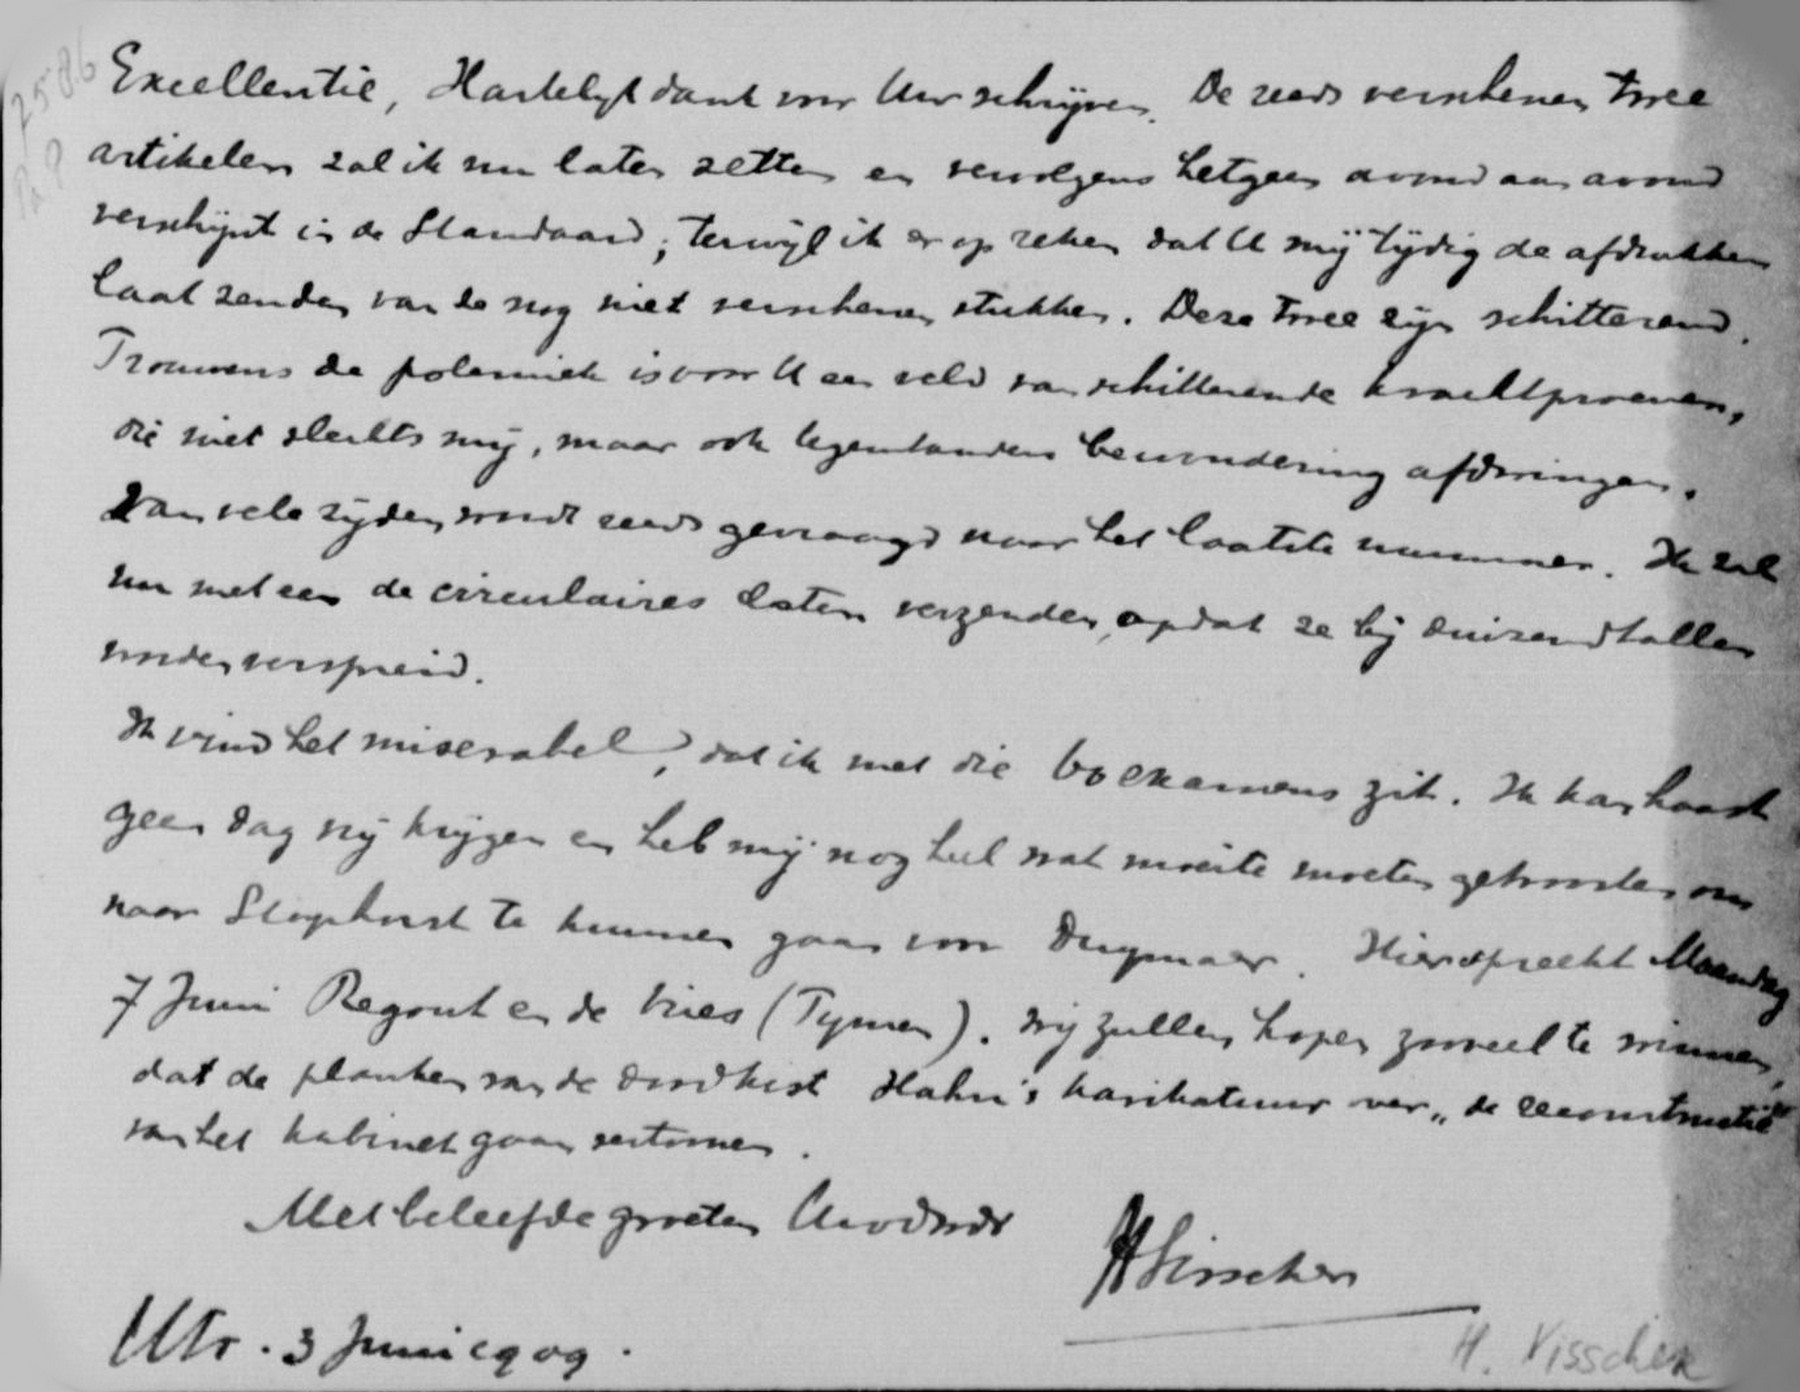 7586
Excellentie, Hartelijk dank voor Uw schrijven. De reeds verschenen twee
artikelen zal ik nu laten zetten en vervolgens hetgeen avond aan avond
verschijnt in de Standaard; terwijl ik er op reken dat U mij tijdig de afdrukken
laat zenden van de nog niet verschenen stukken. Deze twee zijn schitterend.
Trouwens de polemiek is voor U een veld van schitterende krachtproeven,
die niet slechts mij, maar ook tegenstanders bewondering afdwingen.
Van vele zijden wordt reeds gevraagd naar het laatste nummer. Ik zal
nu meteen de circulaires laten verzenden, opdat ze bij duizendtallen
worden verspreid.
Ik vind het miserabel, dat ik met die examens zit. Ik kan haast
geen dag vrij krijgen en heb mij nog heel wat moeite moeten getroosten om
naar Staphorst te kunnen gaan voor Duymaer. Hier spreekt Maandag
7 Juni Regout en de Vries (Tymen). Wij zullen hopen zooveel te winnen,
dat de planken van de doodkist Hahn's karikatuur over „de reconstructie"
van het kabinet gaan vertoonen.
Met beleefde groeten Uw dw dr
HVisscher
Utr. 3 Juni 1909.
H. Visscher